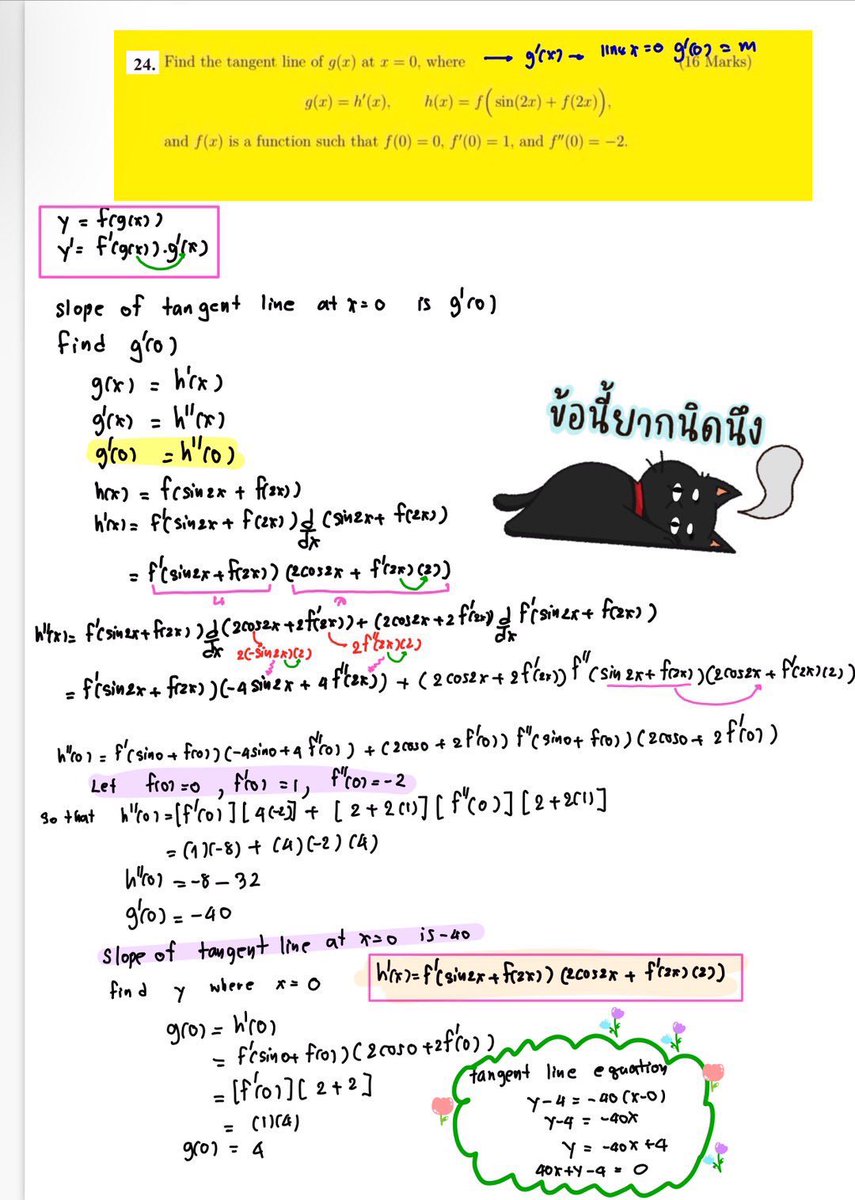 24. Find the tangent line of g(x) at x = 0, where → g'(x) → แทน x = 0 g'(0) = m
(16 Marks)
g(x) = h'(x), h(x) = f( sin(2x) + f(2x)),
and f(x) is a function such that f(0) = 0, f'(0) = 1, and f''(0) = −2.
y = f(g(x))
y' = f'(g(x)).g'(x)
slope of tangent line at x=0 is g'(0)
find g'(0)
g(x) = h'(x)
g'(x) = h''(x)
g'(0) = h''(0)
ข้อนี้ยากนิดนึง
h(x) = f(sin2x + f(2x))
h'(x) = f'(sin2x + f(2x)) d/dx (sin2x + f(2x))
= f'(sin2x + f(2x)) (2cos2x + f'(2x)(2))
h''(x) = f'(sin2x + f(2x)) d/dx (2cos2x + 2f'(2x)) + (2cos2x + 2f'(2x)) d/dx f'(sin2x + f(2x))
2(-sin2x)(2) 2f''(2x)(2)
= f'(sin2x + f(2x))(-4sin2x + 4f''(2x)) + (2cos2x + 2f'(2x)) f''(sin2x + f(2x))(2cos2x + f'(2x)(2))
h''(0) = f'(sin0 + f(0))(-4sin0 + 4f''(0)) + (2cos0 + 2f'(0)) f''(sin0 + f(0)) (2cos0 + 2f'(0))
Let f(0) = 0 , f'(0) = 1, f''(0) = -2
so that h''(0) = [f'(0)][4(-2)] + [2 + 2(1)][f''(0)][2 + 2(1)]
= (1)(-8) + (4)(-2)(4)
h''(0) = -8 - 32
g'(0) = -40
slope of tangent line at x=0 is -40
find y where x = 0
h'(x) = f'(sin2x + f(2x)) (2cos2x + f'(2x)(2))
g(0) = h'(0)
= f'(sin0 + f(0))(2cos0 + 2f'(0))
= [f'(0)][2 + 2]
= (1)(4)
g(0) = 4
tangent line equation
y-4 = -40(x-0)
y-4 = -40x
y = -40x+4
40x+y-4 = 0